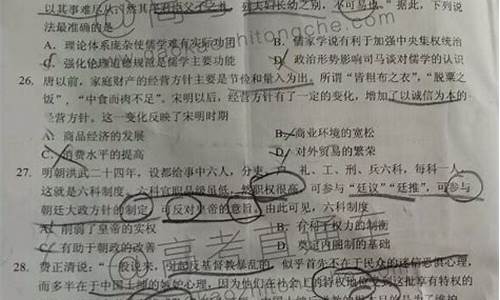 以其事难尽从
列夫妇长幼之别，不可易也。”据此，下列说
法最准确的是
A．理论体系庞杂使儒学难有实际功用
B．儒家学说有利于加强中央集权统治
强化伦理道德规范是儒学主要功能
D．政治形势影响司马谈对儒学的认识
26．唐以前，家庭财产的经营方针主要是节俭和量入为出，所谓“皆粗布之衣”，“脱粟之
饭”，“中食而肉不足”。宋明以后，经营方针有了一定的变化，增加了以诚信为本的
经营方针。这一变化反映了宋明时期
A．商品经济的发展
B．商业环境的宽松
C．消费水平的提高
D．对外贸易的繁荣
27．明朝洪武二十四年，设都给事中六人，分吏、户、礼、工、刑、兵六科，每科一人，
这就是六科制度。六科官职品级虽低，然职权很高，可参与“廷议”“廷推”，可参与
朝廷大政方针的制定，可反对皇帝的意旨。由此可见，六科制度
A．削弱了皇帝的实权
B．有利于权力的制衡
C．有助于朝政的改善
D．奠定内阁制的基础
28．费正清说：“一般说来，对起反基督教暴乱的，似乎首先不在于民众的迷信恐惧心理，
而多半在于中国士绅的妒嫉心理，因为他们在社会上的特权地位受到这批享有特权的